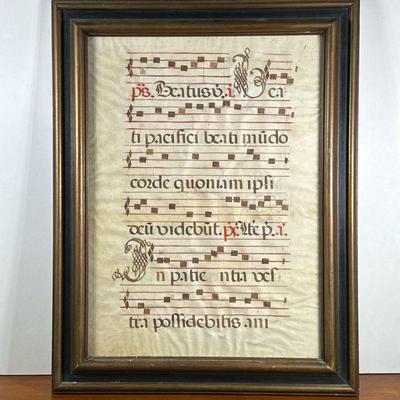 ps. Beatus v. a. Bea
ti pacifici beati mūdo
corde quoniam ipsi
deū videbūt. ps.
In patie ntia ves
tra possidebitis ani